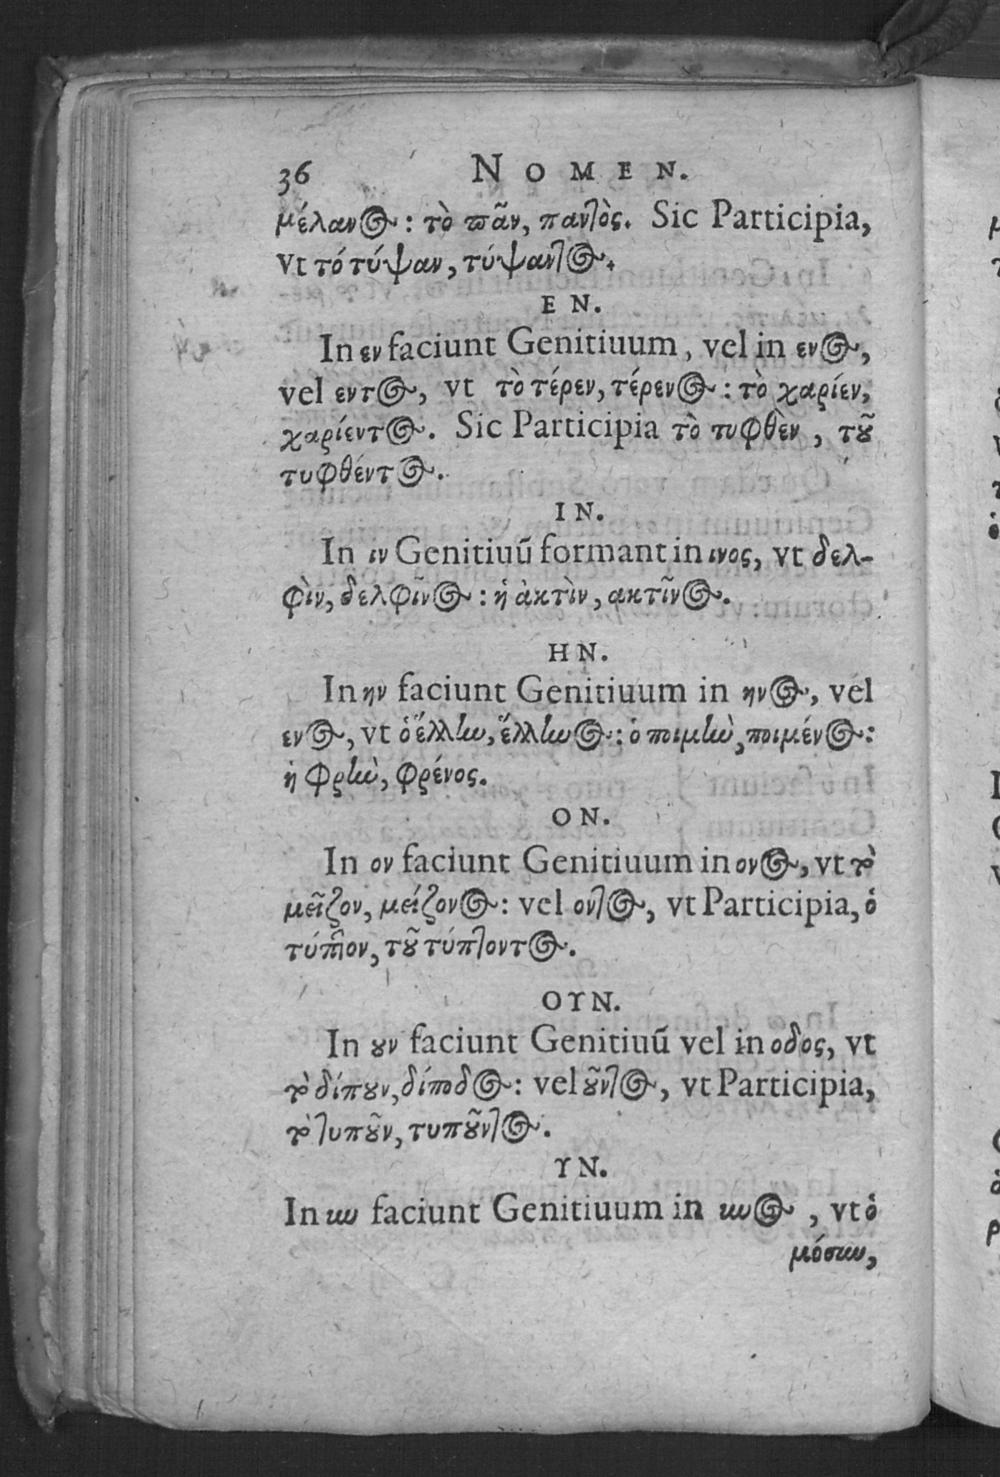 36 NOMEN.
μέλανος : τὸ πᾶν, παντὸς. Sic Participia,
vt τό τύψαν, τύψαντος.
EN.
In εν faciunt Genitiuum, vel in ενος,
vel εντος, vt τὸ τέρεν, τέρενος : τὸ χαρίεν,
χαρίεντος. Sic Participia τὸ τυφθὲν , τοῦ
τυφθέντος.
IN.
In ιν Genitiuũ formant in ινος, vt δελ-
φὶν, δελφῖνος : ἡ ἀκτὶν, ακτῖνος.
HN.
In ην faciunt Genitiuum in ηνος, vel
ενος, vt ὁ ἕλλην, ἕλληνος : ὁ ποιμὴν, ποιμένος :
ἡ φρὴν, φρένος.
ON.
In ον faciunt Genitiuum in ονος, vt τὸ
μεῖζον, μείζονος : vel οντος, vt Participia, ὁ
τύπτον, τοῦ τύπτοντος.
ΟΥΝ.
In ουν faciunt Genitiuũ vel in οδος, vt
τὸ δίπουν, δίποδος : vel οῦντος, vt Participia,
τὸ τυποῦν, τυποῦντος.
ΥΝ.
In υν faciunt Genitiuum in υνος , vt ὁ
μόσυν,